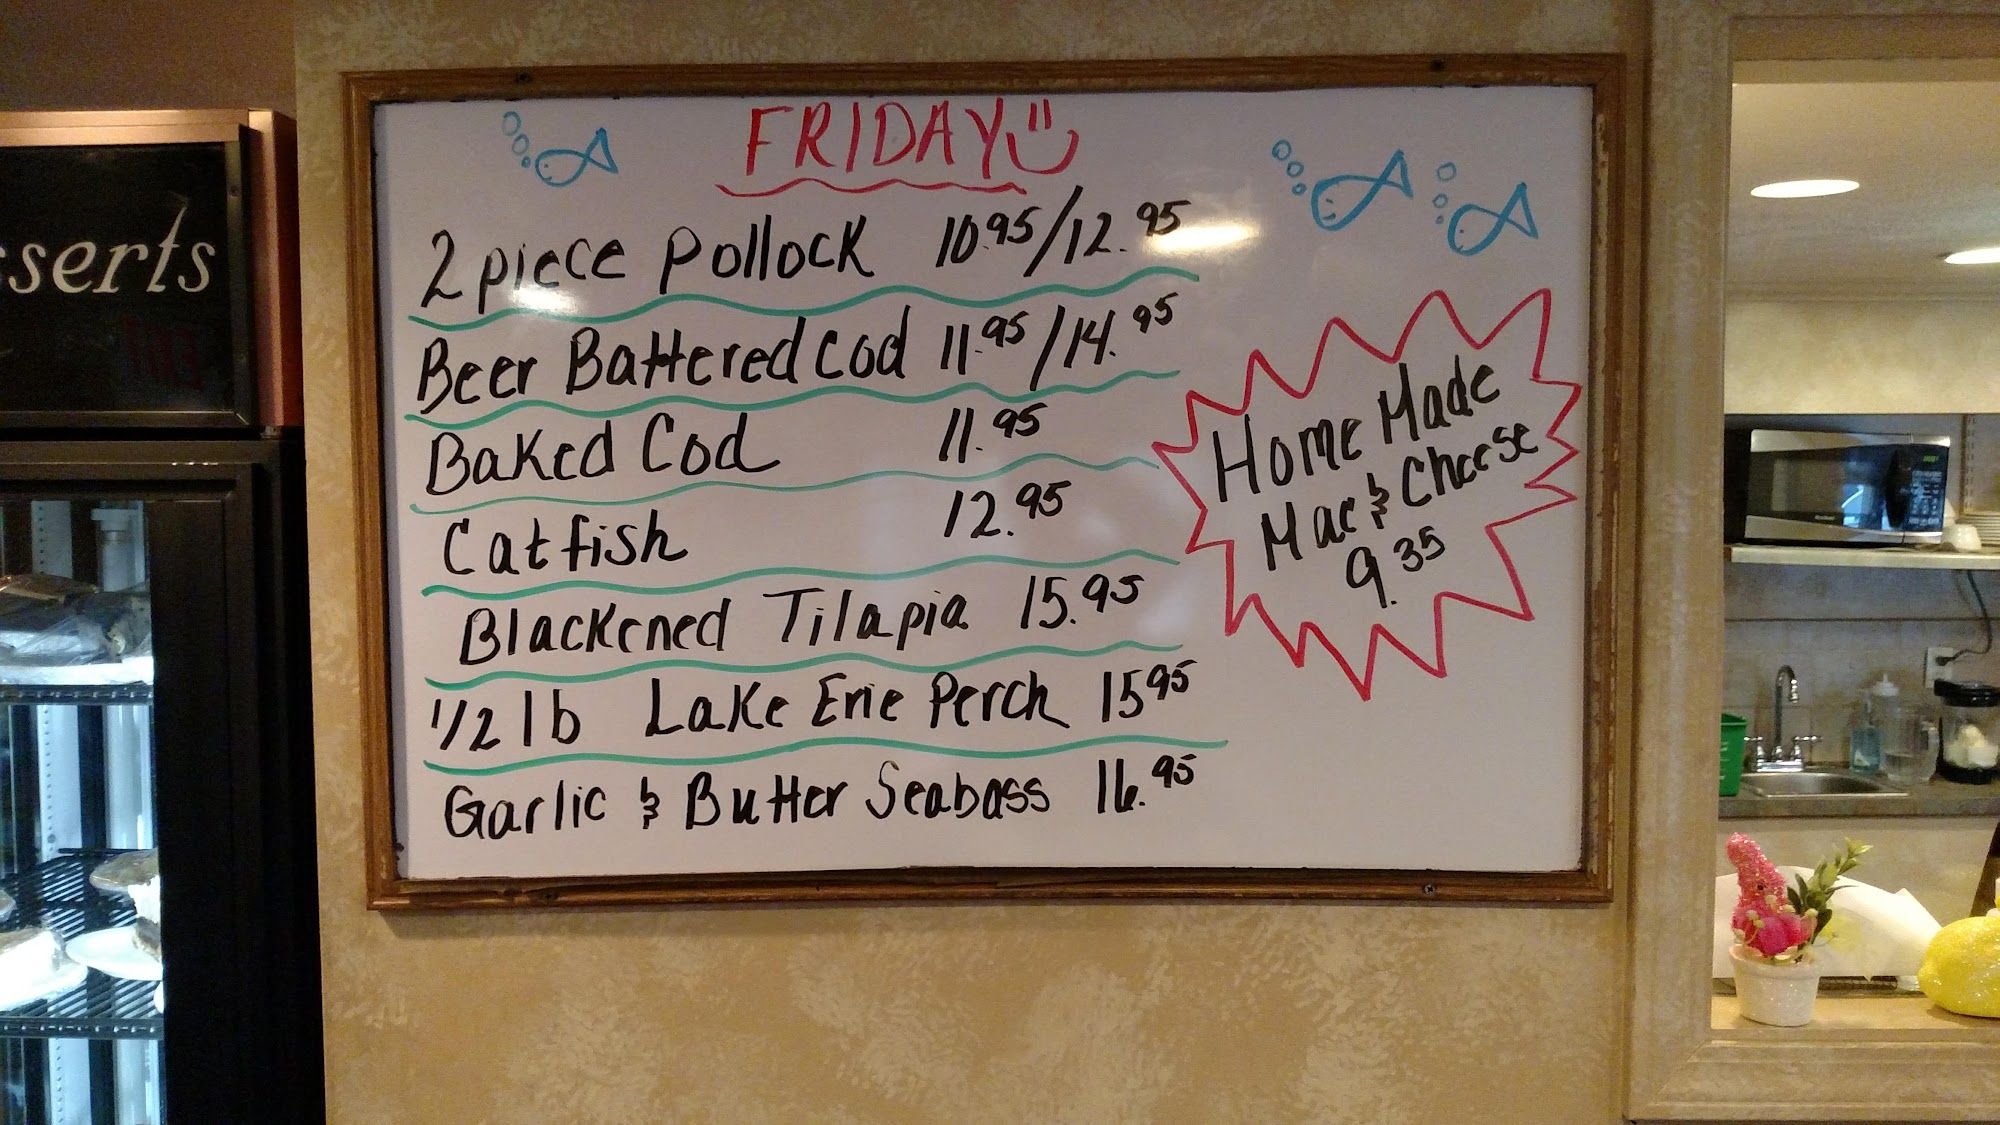 FRIDAY
2 piece Pollock 10.95/12.95
Beer Battered Cod 11.95/14.95
Baked Cod 11.95
Catfish 12.95
Blackened Tilapia 15.95
1/2 lb Lake Erie Perch 15 95
Garlic & Butter Seabass 16.95
Home Made
Mac & Cheese
9.35
sserts